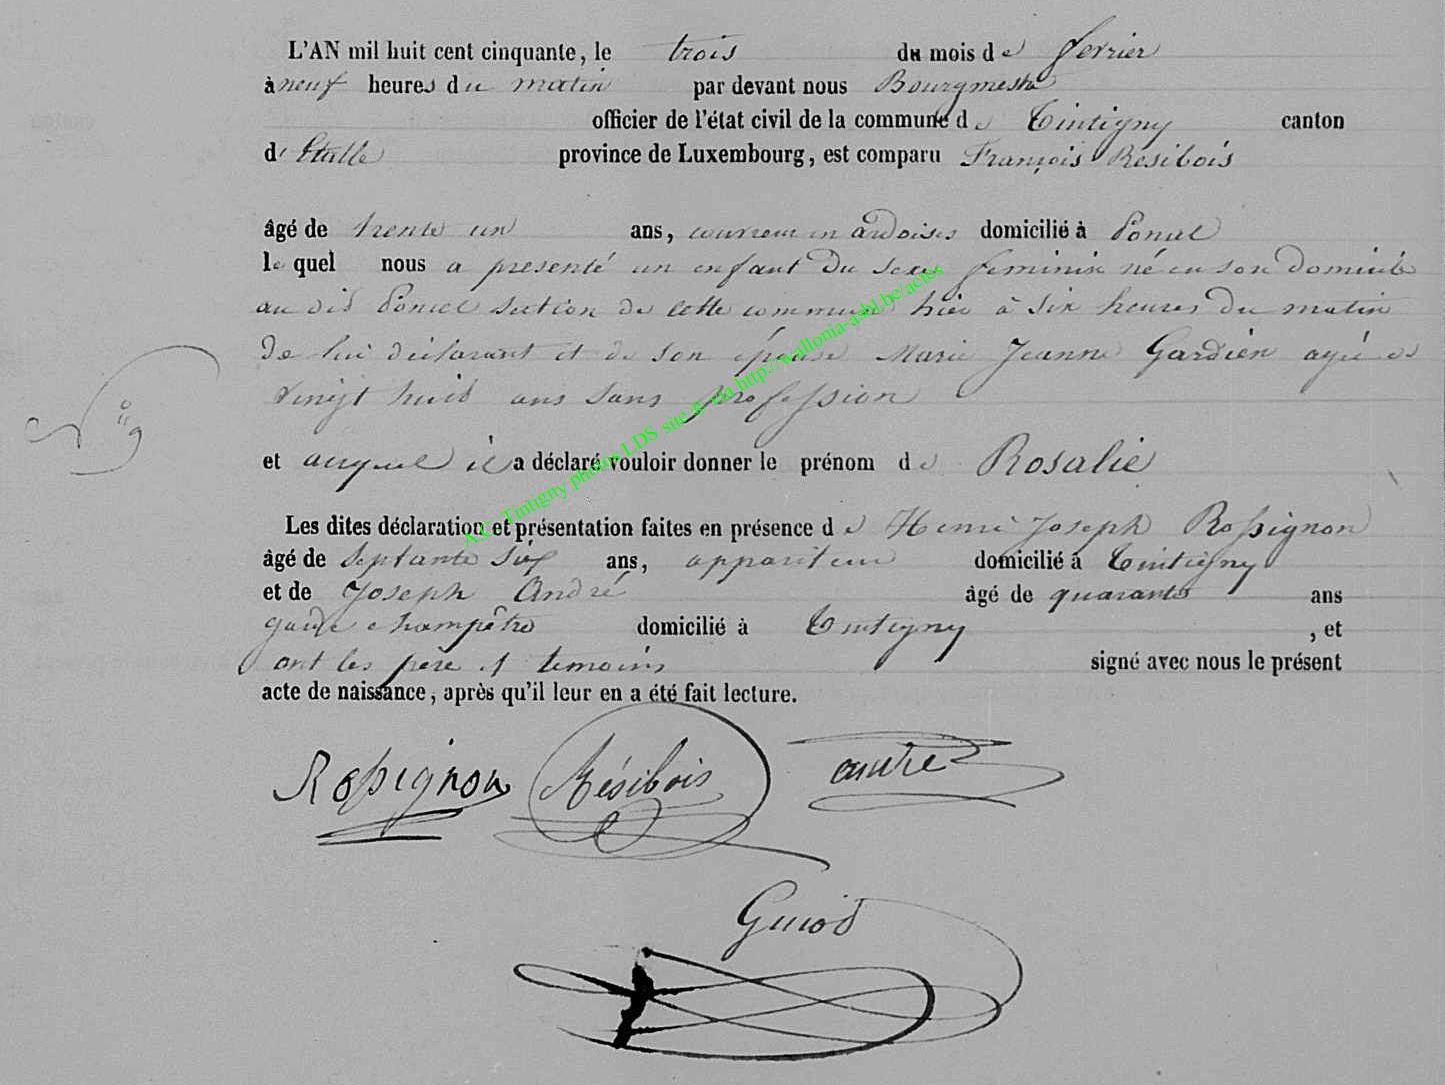 L'AN mil huit cent cinquante, le trois du mois de fevrier
à neuf heures du matin par devant nous Bourgmestre
officier de l'état civil de la commune de Tintigny canton
d'Etalle province de Luxembourg, est comparu François Resibois
âgé de trente un ans, couvreur en ardoises domicilié à Poncel
le quel nous a presenté un enfant du sexe feminin né en son domicile
au dit Poncel section de cette commune hier à six heures du matin
de lui déclarant et de son épouse Marie Jeanne Gardien agée de
vingt huit ans sans profession
N° 9
et auquel il a déclaré vouloir donner le prénom de Rosalie
Les dites déclaration et présentation faites en présence de Henri Joseph Rossignon
âgé de septante six ans, appariteur domicilié à Tintigny
et de Joseph André âgé de quarante ans
garde champêtre domicilié à Tintigny , et
ont les père et temoins signé avec nous le présent
acte de naissance, après qu'il leur en a été fait lecture.
Rossignon Résibois andre
Guiot
A.C. Tintigny photos LDS site @ via http://wallonia-asbl.be/actes